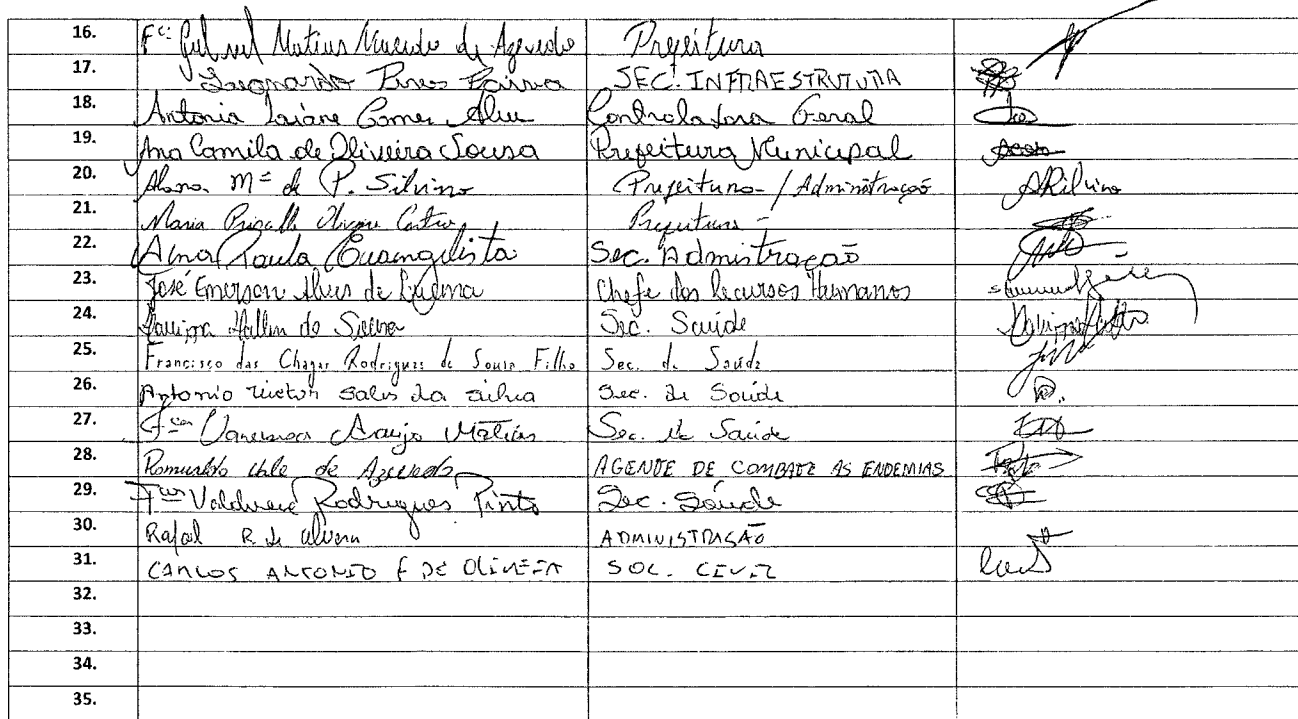 16. Fco Gabriel Matias Macedo de Azevedo Prefeitura
17. Leonardo Pires Paiva SEC. INFRAESTRUTURA
18. Antonia Laiane Gomes Alves Controladora Geral
19. Ana Camila de Oliveira Sousa Prefeitura Municipal
20. Alana Mª de P. Silvino Prefeitura / Administração ARilvino
21. Maria Priscilla Oliveira Castro Prefeitura
22. Ana Paula Evangelista Sec. Admistração
23. José Emerson Alves de Chefe dos Recursos Humanos
24. Hallen de Sousa Sec. Saúde
25. Francisco das Chagas Rodrigues de Sousa Filho Sec. de Saúde
26. Antonio victor sales da silva Sec. de Saúde
27. Fca Vanessa Araujo Matias Sec. de Saúde
28. Romualdo Vale de Azevedo AGENTE DE COMBATE AS ENDEMIAS
29. Rodrigues Pinto Sec. Saúde
30. Rafael R. de Oliveira ADMINISTRAÇÃO
31. CARLOS ANTONIO F DE OLIVEIRA SOC. CIVIL
32.
33.
34.
35.